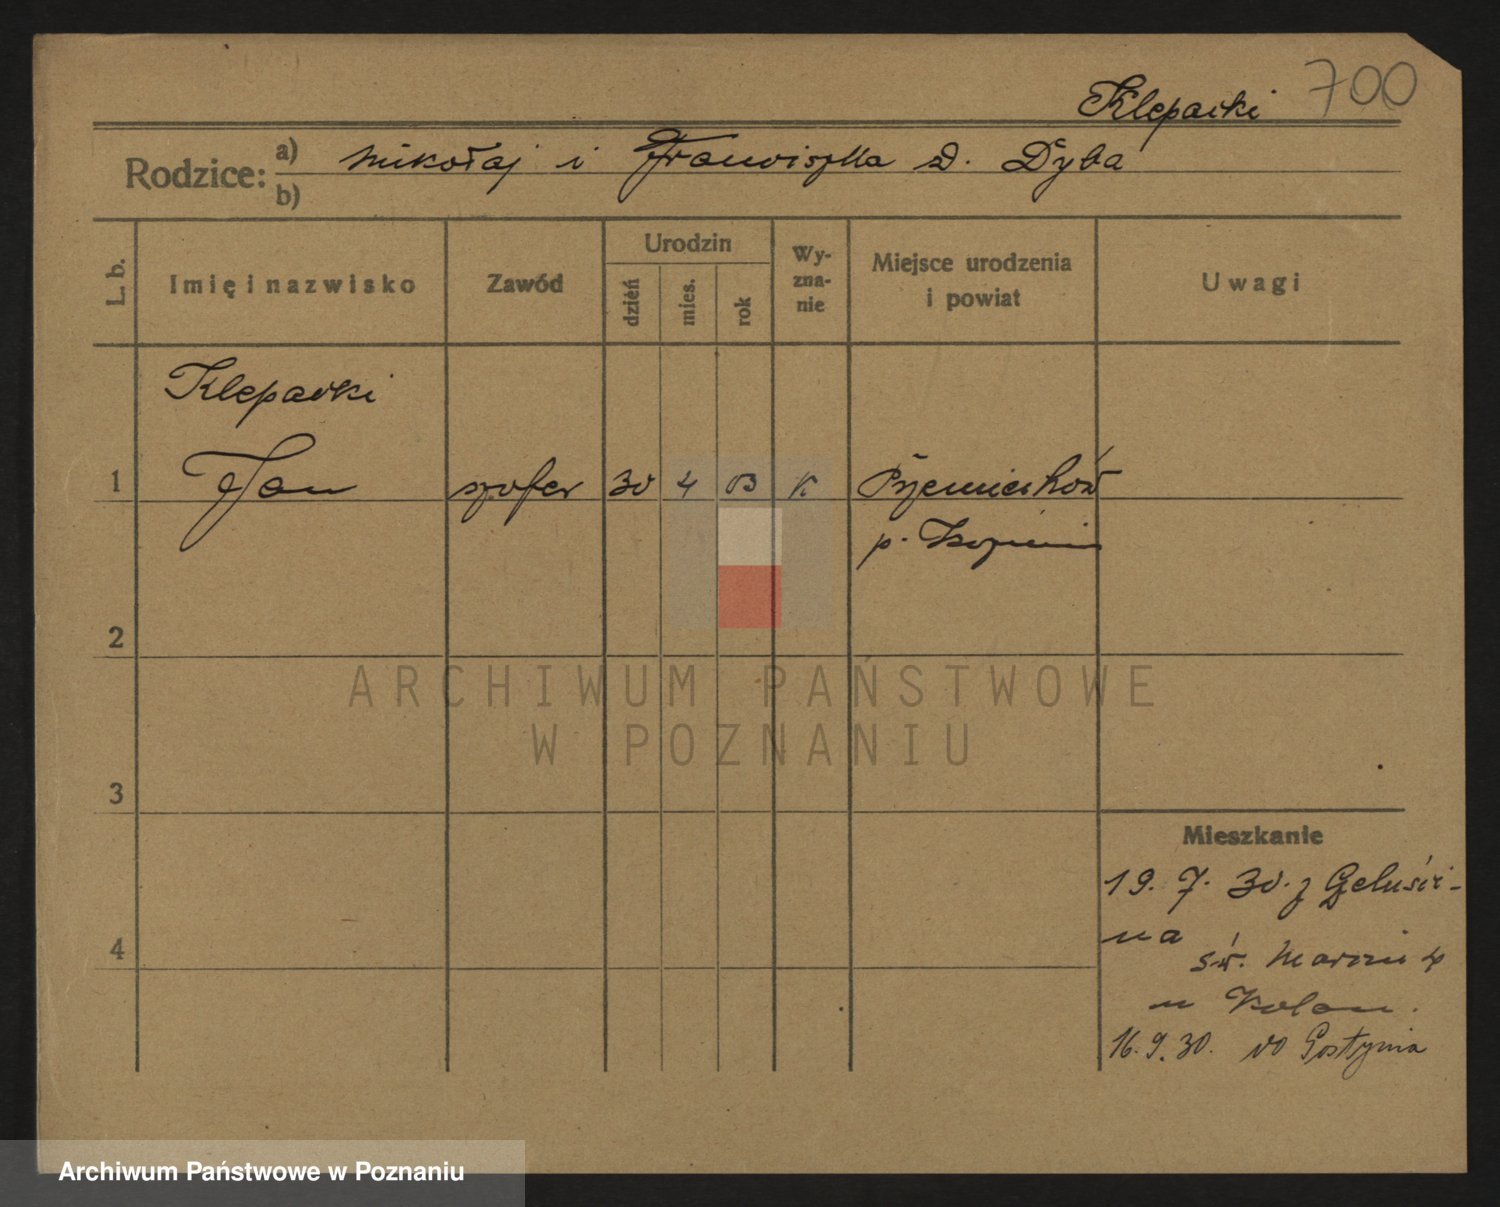 700
Klepacki
Rodzice: a) Mikołaj i Franciszka d. Dyba
b)
L. b.
Imię i nazwisko
Zawód
Urodzin
dzień
mies.
rok
Wy-
zna-
nie
Miejsce urodzenia
i powiat
Uwagi
Klepacki
1 Jan szofer 30 4 03 K
p.
2
3
4
Mieszkanie
19. 7. 30. z
na
św. Marcin
u
16. 9. 30. do Gostynia
ARCHIWUM PAŃSTWOWE
W POZNANIU
Archiwum Państwowe w Poznaniu